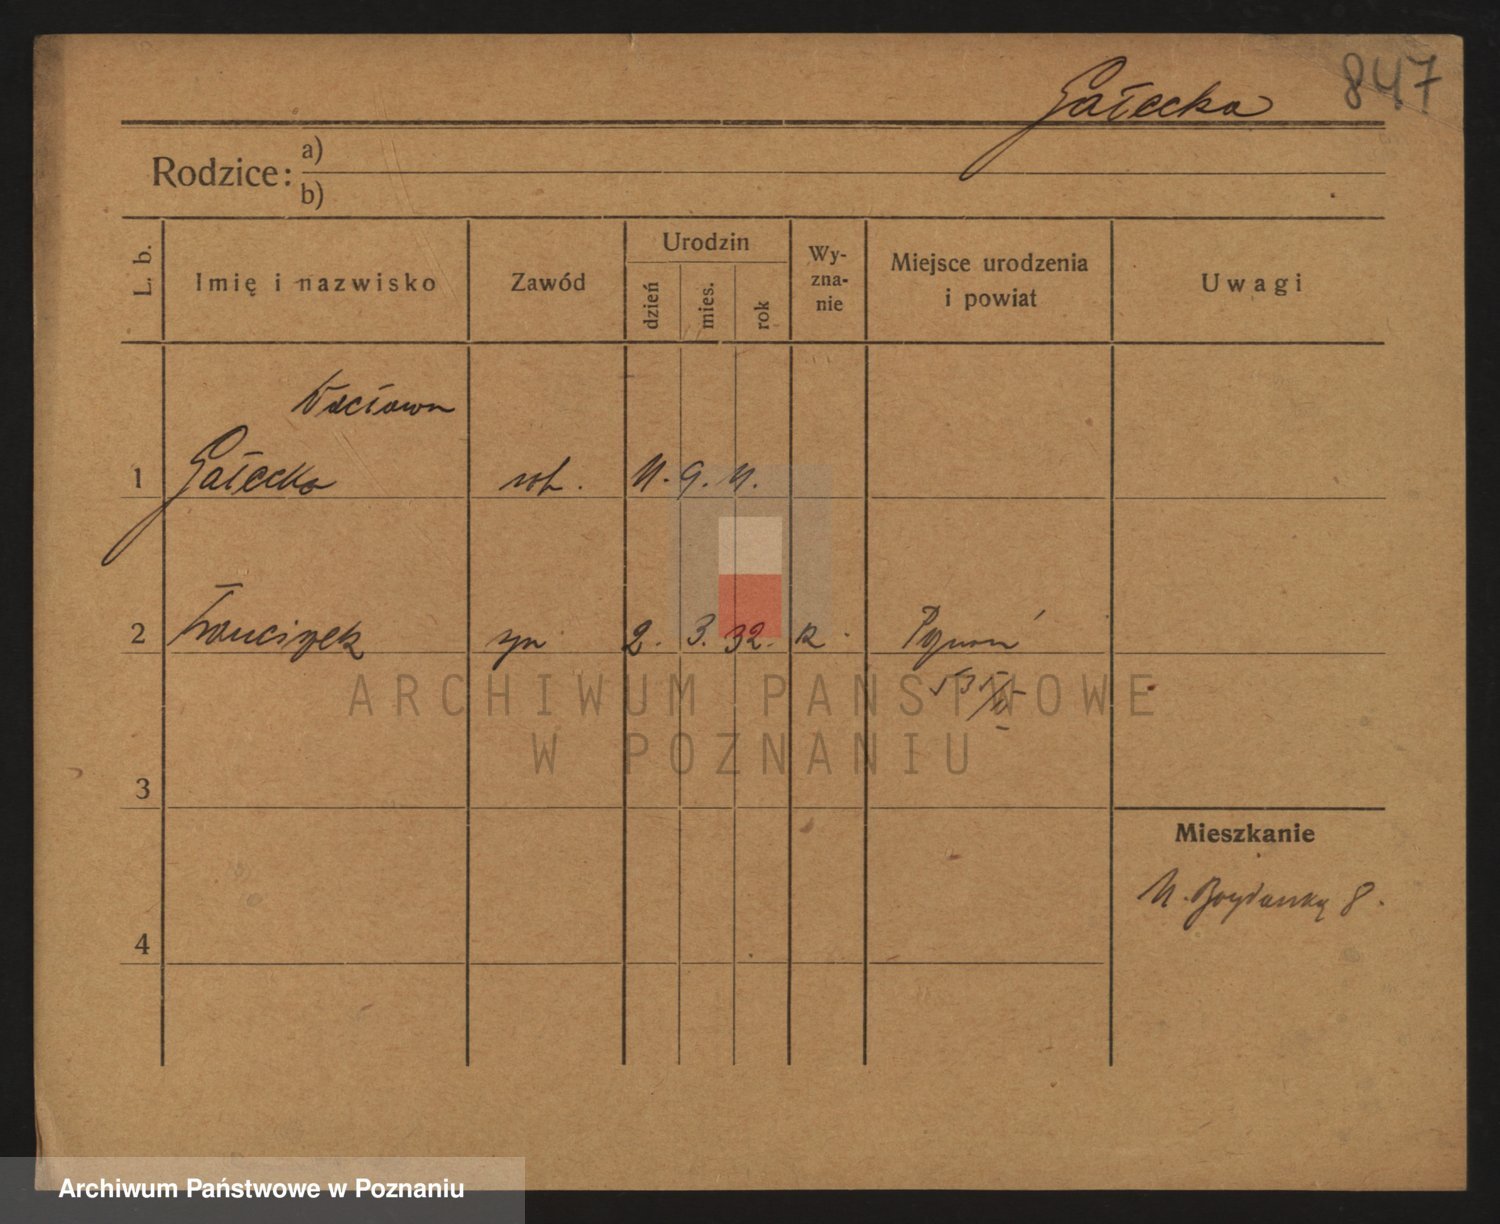 847
Gałecka
Rodzice:
a)
b)
L. b.
Imię i nazwisko
Zawód
Urodzin
dzień
mies.
rok
Wy-
zna-
nie
Miejsce urodzenia
i powiat
Uwagi
Wacława
1 Gałecka rob. 11. 9. 11.
2 Franciszek syn 2. 3. 32. R. Poznań
3
Mieszkanie
N. Bogdanką 8.
4
ARCHIWUM PAŃSTWOWE
W POZNANIU
Archiwum Państwowe w Poznaniu